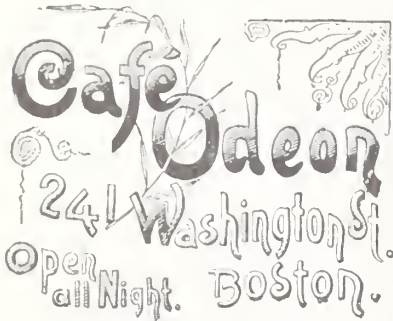 Cafe
Odeon
241 Washington St.
Open
all Night.
Boston.